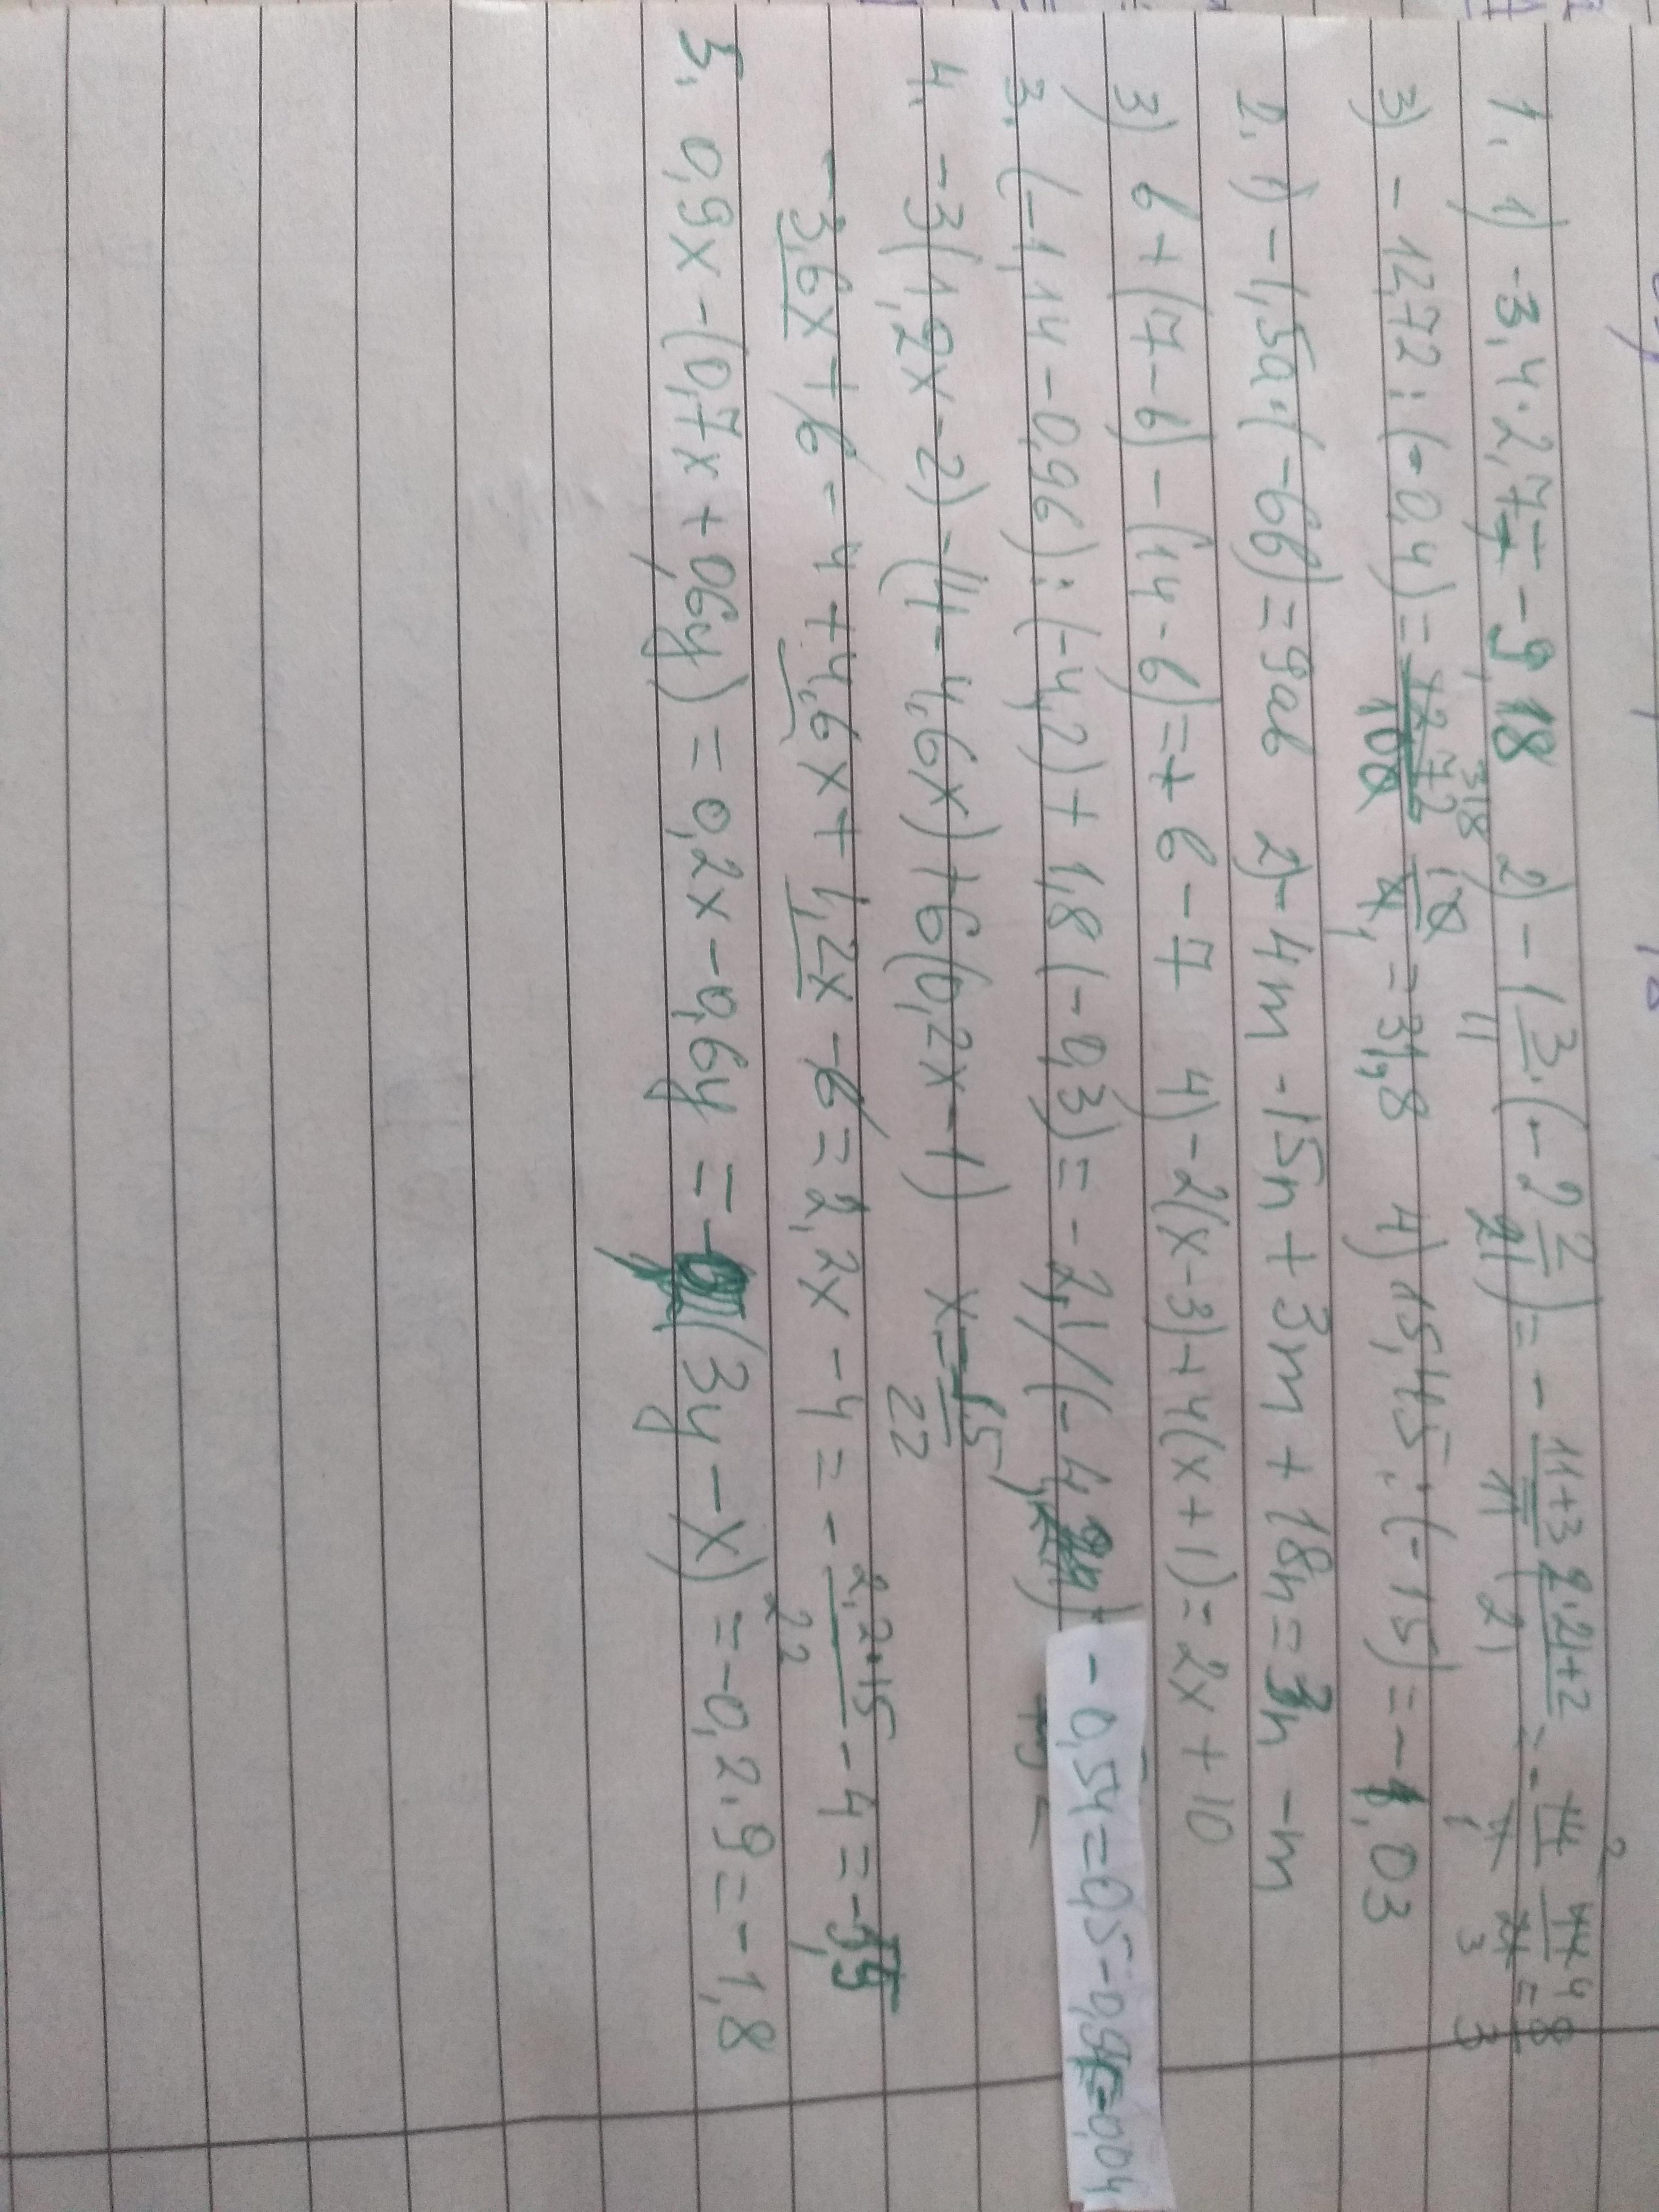 1. 1) -3,4·2,7= -9,18 2) -1 3/11·(-2 2/21)= - 11+3/11 2·21+2/21 = - 14/11 44/21 = 8/3
3) -12,72:(-0,4)= 1272/100 10/4 = 31,8 4) 15,45:(-15)=-1,03
2. 1) -1,5a·(-6b)=9ab 2) -4m -15n + 3m + 18n = 3n - m
3) b+(7-b)-(14-b)=+ b - 7 4) -2(x-3)+4(x+1)=2x+10
3. (-1,14-0,96):(-4,2)+1,8(-0,3)= -2,1/(-4,2) -0,54=0,5-0,54=-0,04
4. -3(1,2x-2)-(4-4,6x)+6(0,2x-1) x=-15/22
-3,6x+6-4+4,6x+1,2x-6=2,2x-4= - 2,2·15/22 -4=-5,5
5. 0,9x-(0,7x+0,6y)=0,2x-0,6y=-0,2(3y-x)=-0,2·9=-1,8